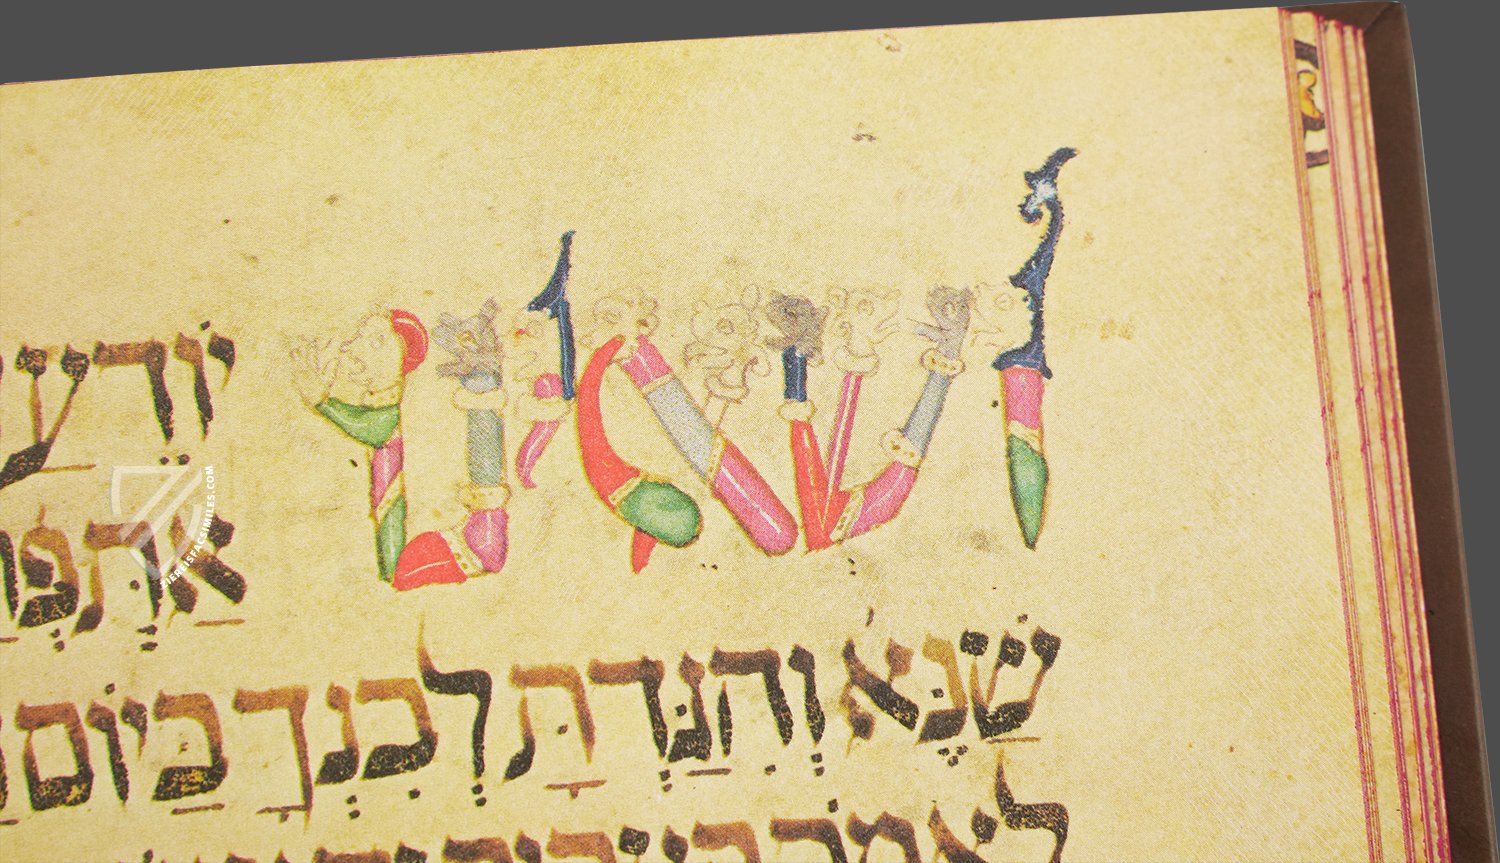 ושאינו
יוֹדֵעַ
אַתְּ
שֶׁנֶּא וְהִגַּדְתָּ לְבִנְךָ בַּיּוֹם
לאמֹר
ZIEREISFACSIMILES.COM